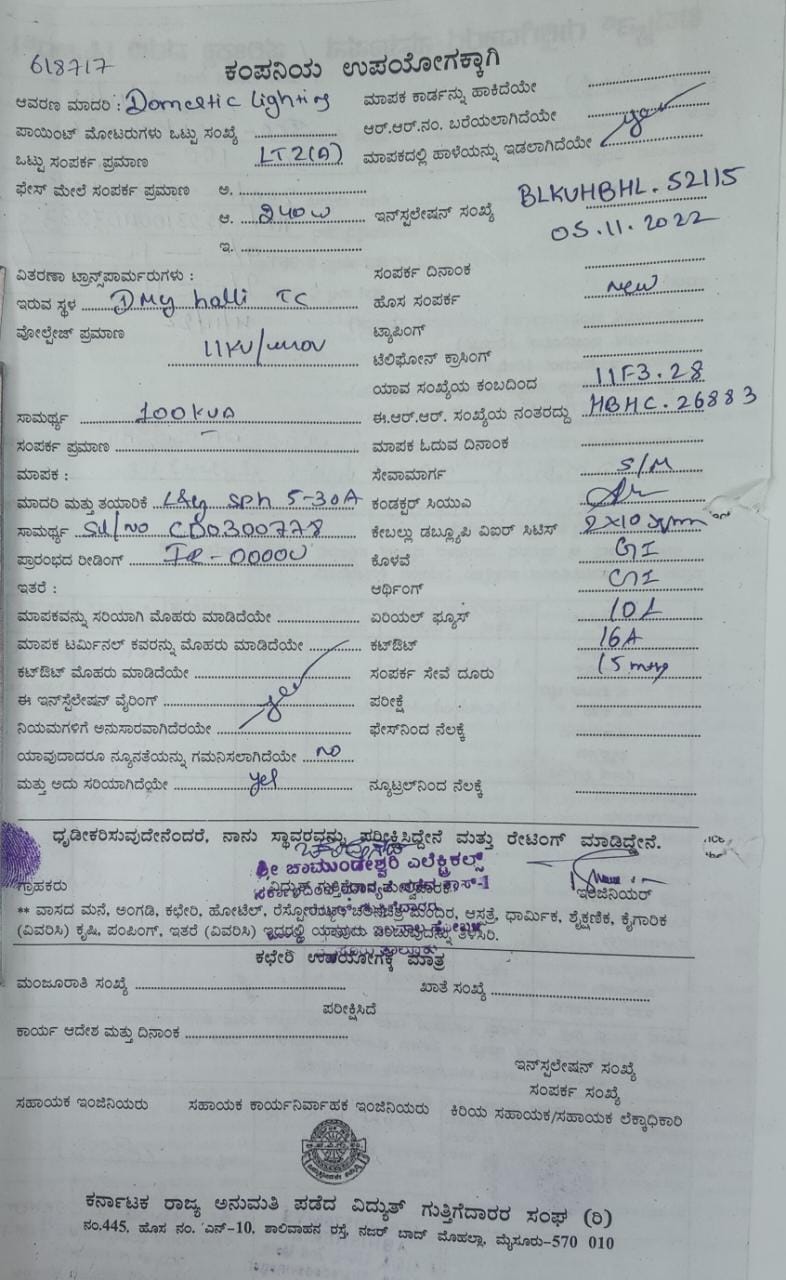 618717
ಕಂಪನಿಯ ಉಪಯೋಗಕ್ಕಾಗಿ
ಆವರಣ ಮಾದರಿ : Domestic lighting ಮಾಪಕ ಕಾರ್ಡನ್ನು ಹಾಕಿದೆಯೇ
ಪಾಯಿಂಟ್ ಮೋಟರುಗಳು ಒಟ್ಟು ಸಂಖ್ಯೆ ಆರ್.ಆರ್.ನಂ. ಬರೆಯಲಾಗಿದೆಯೇ
ಒಟ್ಟು ಸಂಪರ್ಕ ಪ್ರಮಾಣ LT2(A) ಮಾಪಕದಲ್ಲಿ ಹಾಳೆಯನ್ನು ಇಡಲಾಗಿದೆಯೇ yes
ಫೇಸ್ ಮೇಲೆ ಸಂಪರ್ಕ ಪ್ರಮಾಣ ಅ.
ಆ. 240w ಇನ್‌ಸ್ಪಲೇಷನ್ ಸಂಖ್ಯೆ BLKUHBHL.52115
05.11.2022
ಇ.
ವಿತರಣಾ ಟ್ರಾನ್ಸ್‌ಪಾರ್ಮರುಗಳು : ಸಂಪರ್ಕ ದಿನಾಂಕ
ಇರುವ ಸ್ಥಳ halli TC ಹೊಸ ಸಂಪರ್ಕ new
ವೋಲ್ಟೇಜ್ ಪ್ರಮಾಣ 11KV/ ಟ್ಯಾಪಿಂಗ್
ಟೆಲಿಫೋನ್ ಕ್ರಾಸಿಂಗ್
ಯಾವ ಸಂಖ್ಯೆಯ ಕಂಬದಿಂದ 11F3.28
ಸಾಮರ್ಥ್ಯ 100kVA ಈ.ಆರ್.ಆರ್. ಸಂಖ್ಯೆಯ ನಂತರದ್ದು HBHC.26883
ಸಂಪರ್ಕ ಪ್ರಮಾಣ ಮಾಪಕ ಓದುವ ದಿನಾಂಕ
ಮಾಪಕ : ಸೇವಾಮಾರ್ಗ S/M
ಮಾದರಿ ಮತ್ತು ತಯಾರಿಕೆ L&G SPh 5-30A ಕಂಡಕ್ಟರ್ ಸಿಯುಎ
ಸಾಮರ್ಥ್ಯ Sl/no CD0300778 ಕೇಬಲ್ಲು ಡಬ್ಲ್ಯೂಪಿ ವಿಐರ್ ಸಿಟಿಸ್ 2X10 sqmm
ಪ್ರಾರಂಭದ ರೀಡಿಂಗ್ IR-00000 ಕೊಳವೆ GI
ಇತರೆ : ಆರ್ಥಿಂಗ್ GI
ಮಾಪಕವನ್ನು ಸರಿಯಾಗಿ ಮೊಹರು ಮಾಡಿದೆಯೇ ಏರಿಯಲ್ ಫ್ಯೂಸ್
ಮಾಪಕ ಟರ್ಮಿನಲ್ ಕವರನ್ನು ಮೊಹರು ಮಾಡಿದೆಯೇ ಕಟ್‌ಔಟ್ 16A
ಕಟ್‌ಔಟ್ ಮೊಹರು ಮಾಡಿದೆಯೇ ಸಂಪರ್ಕ ಸೇವೆ ದೂರು 15 mtrs
ಈ ಇನ್‌ಸ್ಟಲೇಷನ್ ವೈರಿಂಗ್ yes ಪರೀಕ್ಷೆ
ನಿಯಮಗಳಿಗೆ ಅನುಸಾರವಾಗಿದೆರೆಯೇ ಫೇಸ್‌ನಿಂದ ನೆಲಕ್ಕೆ
ಯಾವುದಾದರೂ ನ್ಯೂನತೆಯನ್ನು ಗಮನಿಸಲಾಗಿದೆಯೇ no
ಮತ್ತು ಅದು ಸರಿಯಾಗಿದೆಯೇ yes ನ್ಯೂಟ್ರಲ್‌ನಿಂದ ನೆಲಕ್ಕೆ
ಧೃಡೀಕರಿಸುವುದೇನೆಂದರೆ, ನಾನು ಸ್ಥಾವರವನ್ನು ಪರೀಕ್ಷಿಸಿದ್ದೇನೆ ಮತ್ತು ರೇಟಿಂಗ್ ಮಾಡಿದ್ದೇನೆ.
ಶ್ರೀ ಚಾಮುಂಡೇಶ್ವರಿ ಎಲೆಕ್ಟ್ರಿಕಲ್ಸ್
ಗ್ರಾಹಕರು ಇಂಜಿನಿಯರ್
** ವಾಸದ ಮನೆ, ಅಂಗಡಿ, ಕಛೇರಿ, ಹೋಟೆಲ್, ಮಂದಿರ, ಆಸ್ಪತ್ರೆ, ಧಾರ್ಮಿಕ, ಶೈಕ್ಷಣಿಕ, ಕೈಗಾರಿಕ
(ವಿವರಿಸಿ) ಕೃಷಿ, ಪಂಪಿಂಗ್, ಇತರೆ (ವಿವರಿಸಿ) ಇದರಲ್ಲಿ ತಿಳಿಸಿರಿ.
ಕಛೇರಿ ಉಪಯೋಗಕ್ಕೆ ಮಾತ್ರ
ಮಂಜೂರಾತಿ ಸಂಖ್ಯೆ ಖಾತೆ ಸಂಖ್ಯೆ
ಪರೀಕ್ಷಿಸಿದೆ
ಕಾರ್ಯ ಆದೇಶ ಮತ್ತು ದಿನಾಂಕ
ಇನ್‌ಸ್ಪಲೇಷನ್ ಸಂಖ್ಯೆ
ಸಂಪರ್ಕ ಸಂಖ್ಯೆ
ಸಹಾಯಕ ಇಂಜಿನಿಯರು ಸಹಾಯಕ ಕಾರ್ಯನಿರ್ವಾಹಕ ಇಂಜಿನಿಯರು ಕಿರಿಯ ಸಹಾಯಕ/ಸಹಾಯಕ ಲೆಕ್ಕಾಧಿಕಾರಿ
ಕರ್ನಾಟಕ ರಾಜ್ಯ ಅನುಮತಿ ಪಡೆದ ವಿದ್ಯುತ್ ಗುತ್ತಿಗೆದಾರರ ಸಂಘ (ರಿ)
ನಂ.445, ಹೊಸ ನಂ. ಎನ್-10, ಶಾಲಿವಾಹನ ರಸ್ತೆ, ನಜರ್ ಬಾದ್ ಮೊಹಲ್ಲಾ, ಮೈಸೂರು-570 010